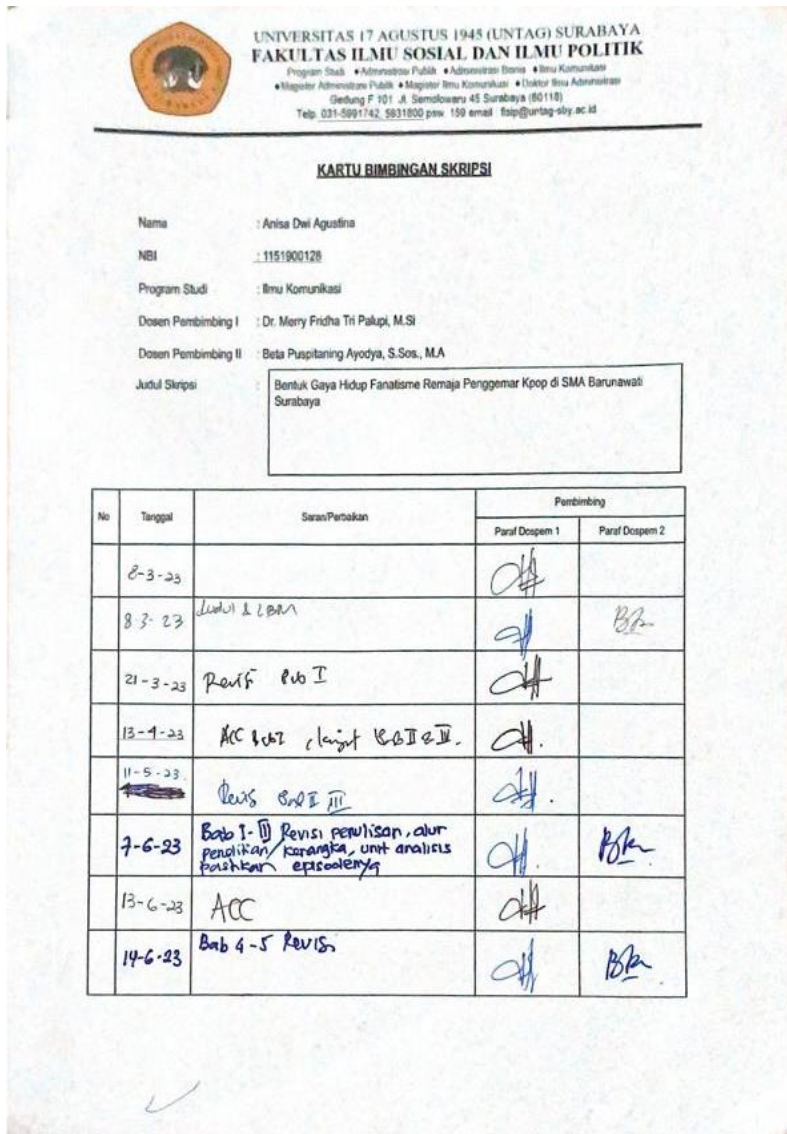 UNIVERSITAS 17 AGUSTUS 1945 (UNTAG) SURABAYA
FAKULTAS ILMU SOSIAL DAN ILMU POLITIK
Program Studi ♦Administrasi Publik ♦Administrasi Bisnis ♦Ilmu Komunikasi
♦Magister Administrasi Publik ♦Magister Ilmu Komunikasi ♦Doktor Ilmu Administrasi
Gedung F 101 Jl. Semolowaru 45 Surabaya (60118)
Telp. 031-5991742, 5931800 psw. 159 email fisip@untag-sby.ac.id
KARTU BIMBINGAN SKRIPSI
Nama : Anisa Dwi Agustina
NBI : 1151900128
Program Studi : Ilmu Komunikasi
Dosen Pembimbing I : Dr. Merry Fridha Tri Palupi, M.Si
Dosen Pembimbing II : Beta Puspitaning Ayodya, S.Sos., M.A
Judul Skripsi : Bentuk Gaya Hidup Fanatisme Remaja Penggemar Kpop di SMA Barunawati
Surabaya
No Tanggal Saran/Perbaikan Pembimbing
Paraf Dospem 1 Paraf Dospem 2
8-3-23
8-3-23 Judul & LBM
21-3-23 Revisi Bab I
13-4-23 ACC Bab I, lanjut Bab II & III.
11-5-23.
Revisi Bab II III
7-6-23 Bab I-III Revisi penulisan, alur
penelitian/kerangka, unit analisis
pastikan episodenya
13-6-23 ACC
14-6-23 Bab 4-5 Revisi